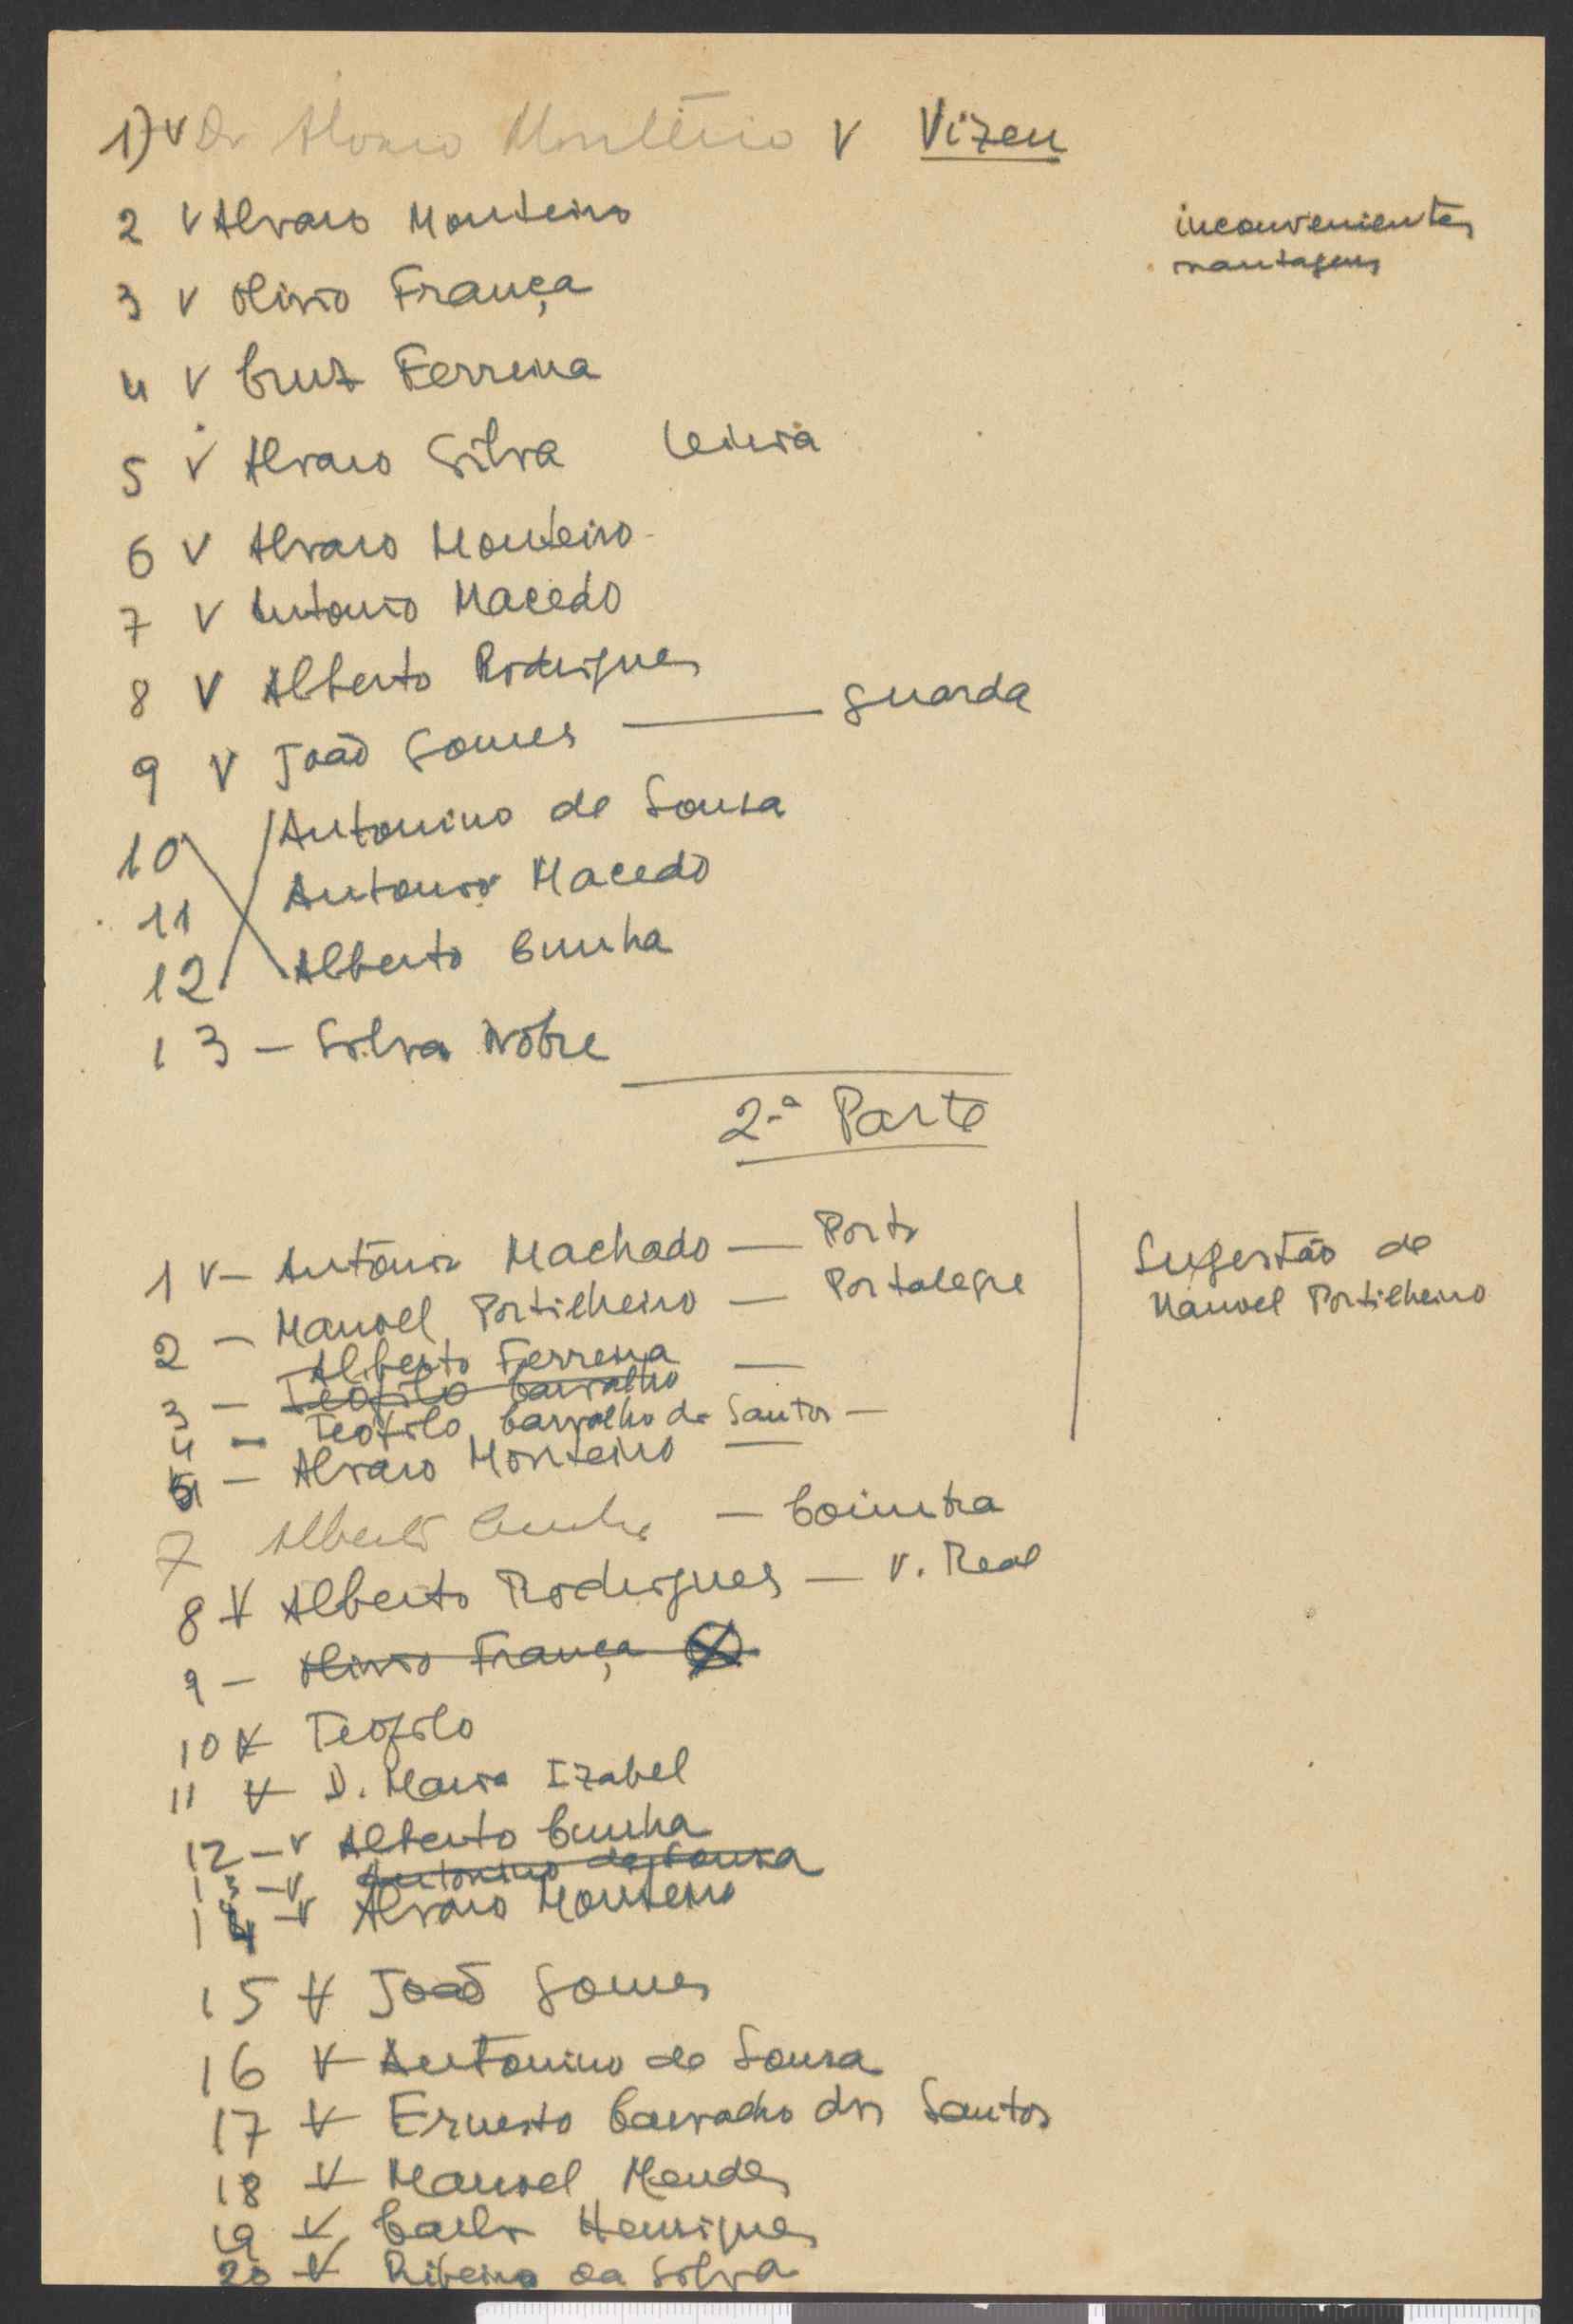 1) V Dr Alvaro Monteiro V Vizeu
2 V Alvaro Monteiro
inconvenientes
vantagens
3 V Olivio França
4 V Cruz Ferreira
5 V Alvaro Silva Leiria
6 V Alvaro Monteiro
7 V Antonio Macedo
8 V Alberto Rodrigues
9 V João Gomes — Guarda
10 Antonino de Sousa
11 Antonio Macedo
12 Alberto Cunha
13 – Silva Nobre
2.ª Parte
1 V – António Machado — Porto
2 – Manoel Portilheiro — Portalegre
Sugestão de
Manoel Portilheiro
Aliberto Ferreira —
3 – Teofilo Carvalho
4 – Teofilo Carvalho do Santos –
5 – Alvaro Monteiro —
7 Alberto Cunha – Coimbra
8 V Alberto Rodrigues – V. Real
9 – Olivio França
10 V Teofilo
11 V D. Maria Izabel
12 – V Alberto Cunha
13 – V Antonino de Sousa
14 – V Alvaro Monteiro
15 V João Gomes
16 V Antonino de Sousa
17 V Ernesto Carvalho dos Santos
18 V Manoel Mendes
19 V Carlos Henriques
20 V Ribeiro da Silva